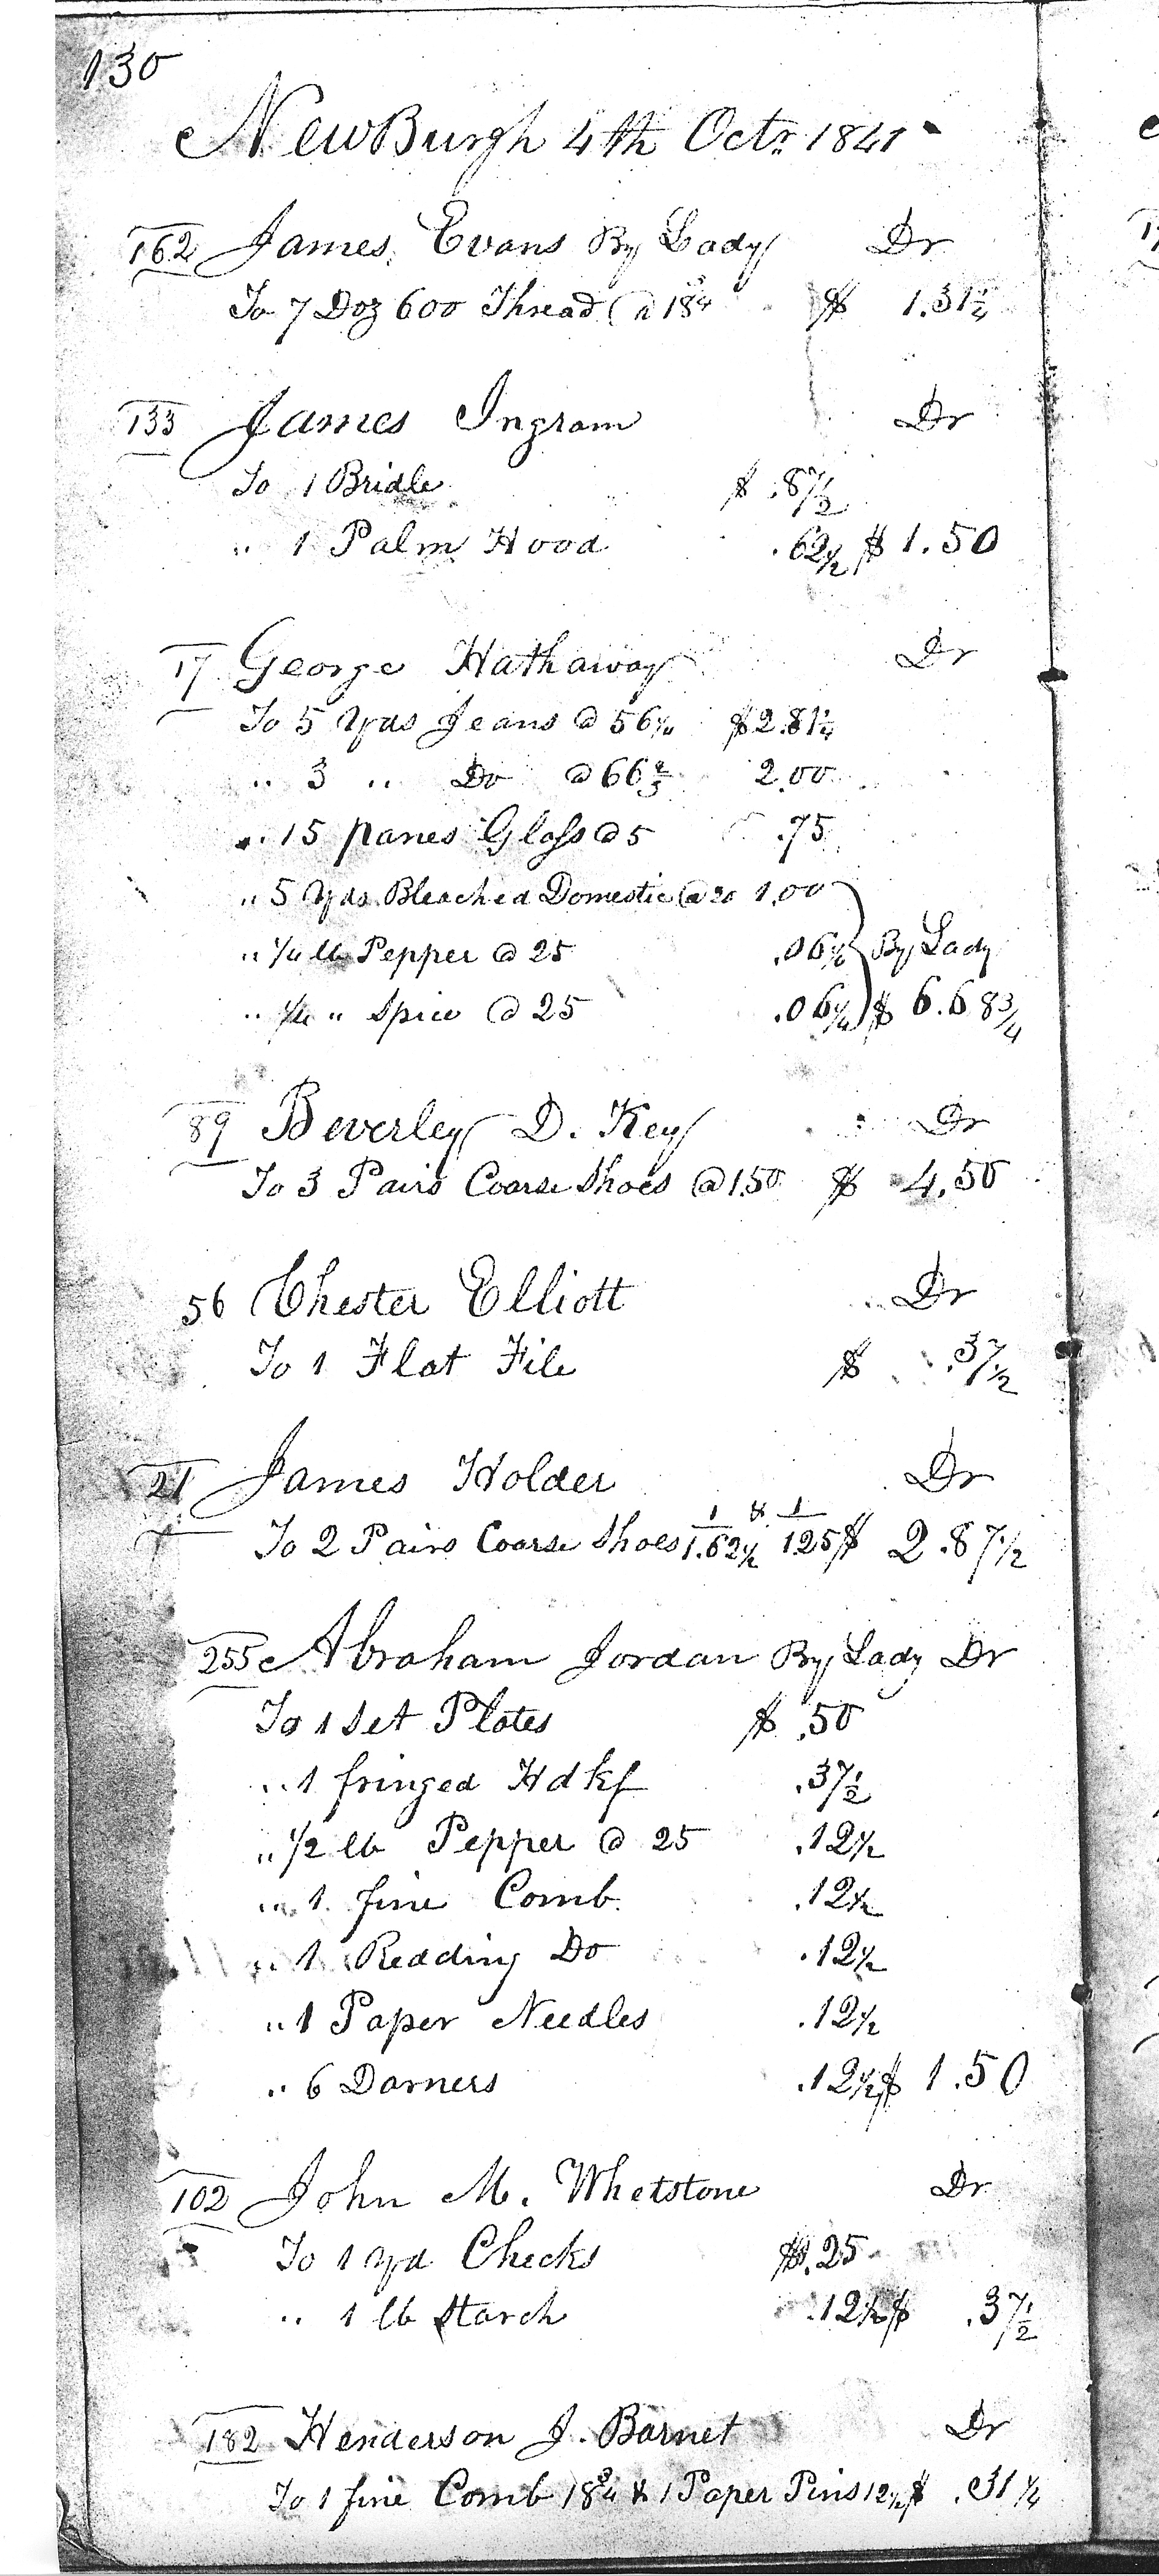 130
NewBurgh 4th Octr. 1841
162 James Evans By Lady Dr
To 7 Doz 600 Thread @ 18¾ $ 1.31¼
133 James Ingram Dr
To 1 Bridle $ .87½
" 1 Palm Hood .62½ $ 1.50
17 George Hathaway Dr
To 5 Yds Jeans @ 56¼ $2.81¼
" 3 " Do @ 66⅔ 2.00
" 15 panes Glass @ 5 .75
" 5 Yds. Bleached Domestic @ 20 1.00
" ¼ lb Pepper @ 25 .06¼ By Lady
" ¼ " Spice @ 25 .06¼ $ 6.68¾
89 Beverley D. Key Dr
To 3 Pairs Coarse Shoes @ 1.50 $ 4.50
56 Chester Elliott Dr
To 1 Flat File $ .37½
21 James Holder Dr
To 2 Pairs Coarse Shoes 1/1.62½ & 1/1.25 $ 2.87½
255 Abraham Jordan By Lady Dr
To 1 Set Plates $ .50
" 1 fringed Hdkf .37½
" ½ lb Pepper @ 25 .12½
" 1 fine Comb .12½
" 1 Redding Do .12½
" 1 Paper Needles .12½
" 6 Darners .12½ $ 1.50
102 John M. Whetstone Dr
To 1 Yd Checks $ .25
" 1 lb Starch .12½ $ .37½
182 Henderson J. Barnet Dr
To 1 fine Comb 18¾ & 1 Paper Pins 12½ $ .31¼